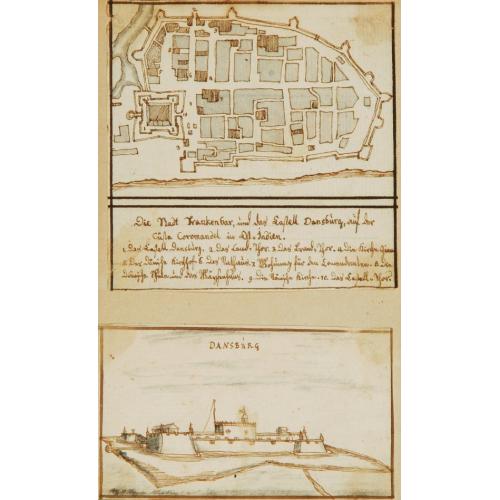 Die Stadt Trankenbar, und das Castell Dansbürg, auf der
Cüste Coromandel in O. Indien.
1. das Castell Dansbürg. 2. das Land-Thor. 3. das Strand-Thor. 4. die Kirche
5. der Dänische Kirchhof. 6. das Rathhaus. 7. Wohnung für den 8. die
Dänische Schule und das 9. die Dänische Kirche. 10. das Castell-Thor.
DANSBÜRG